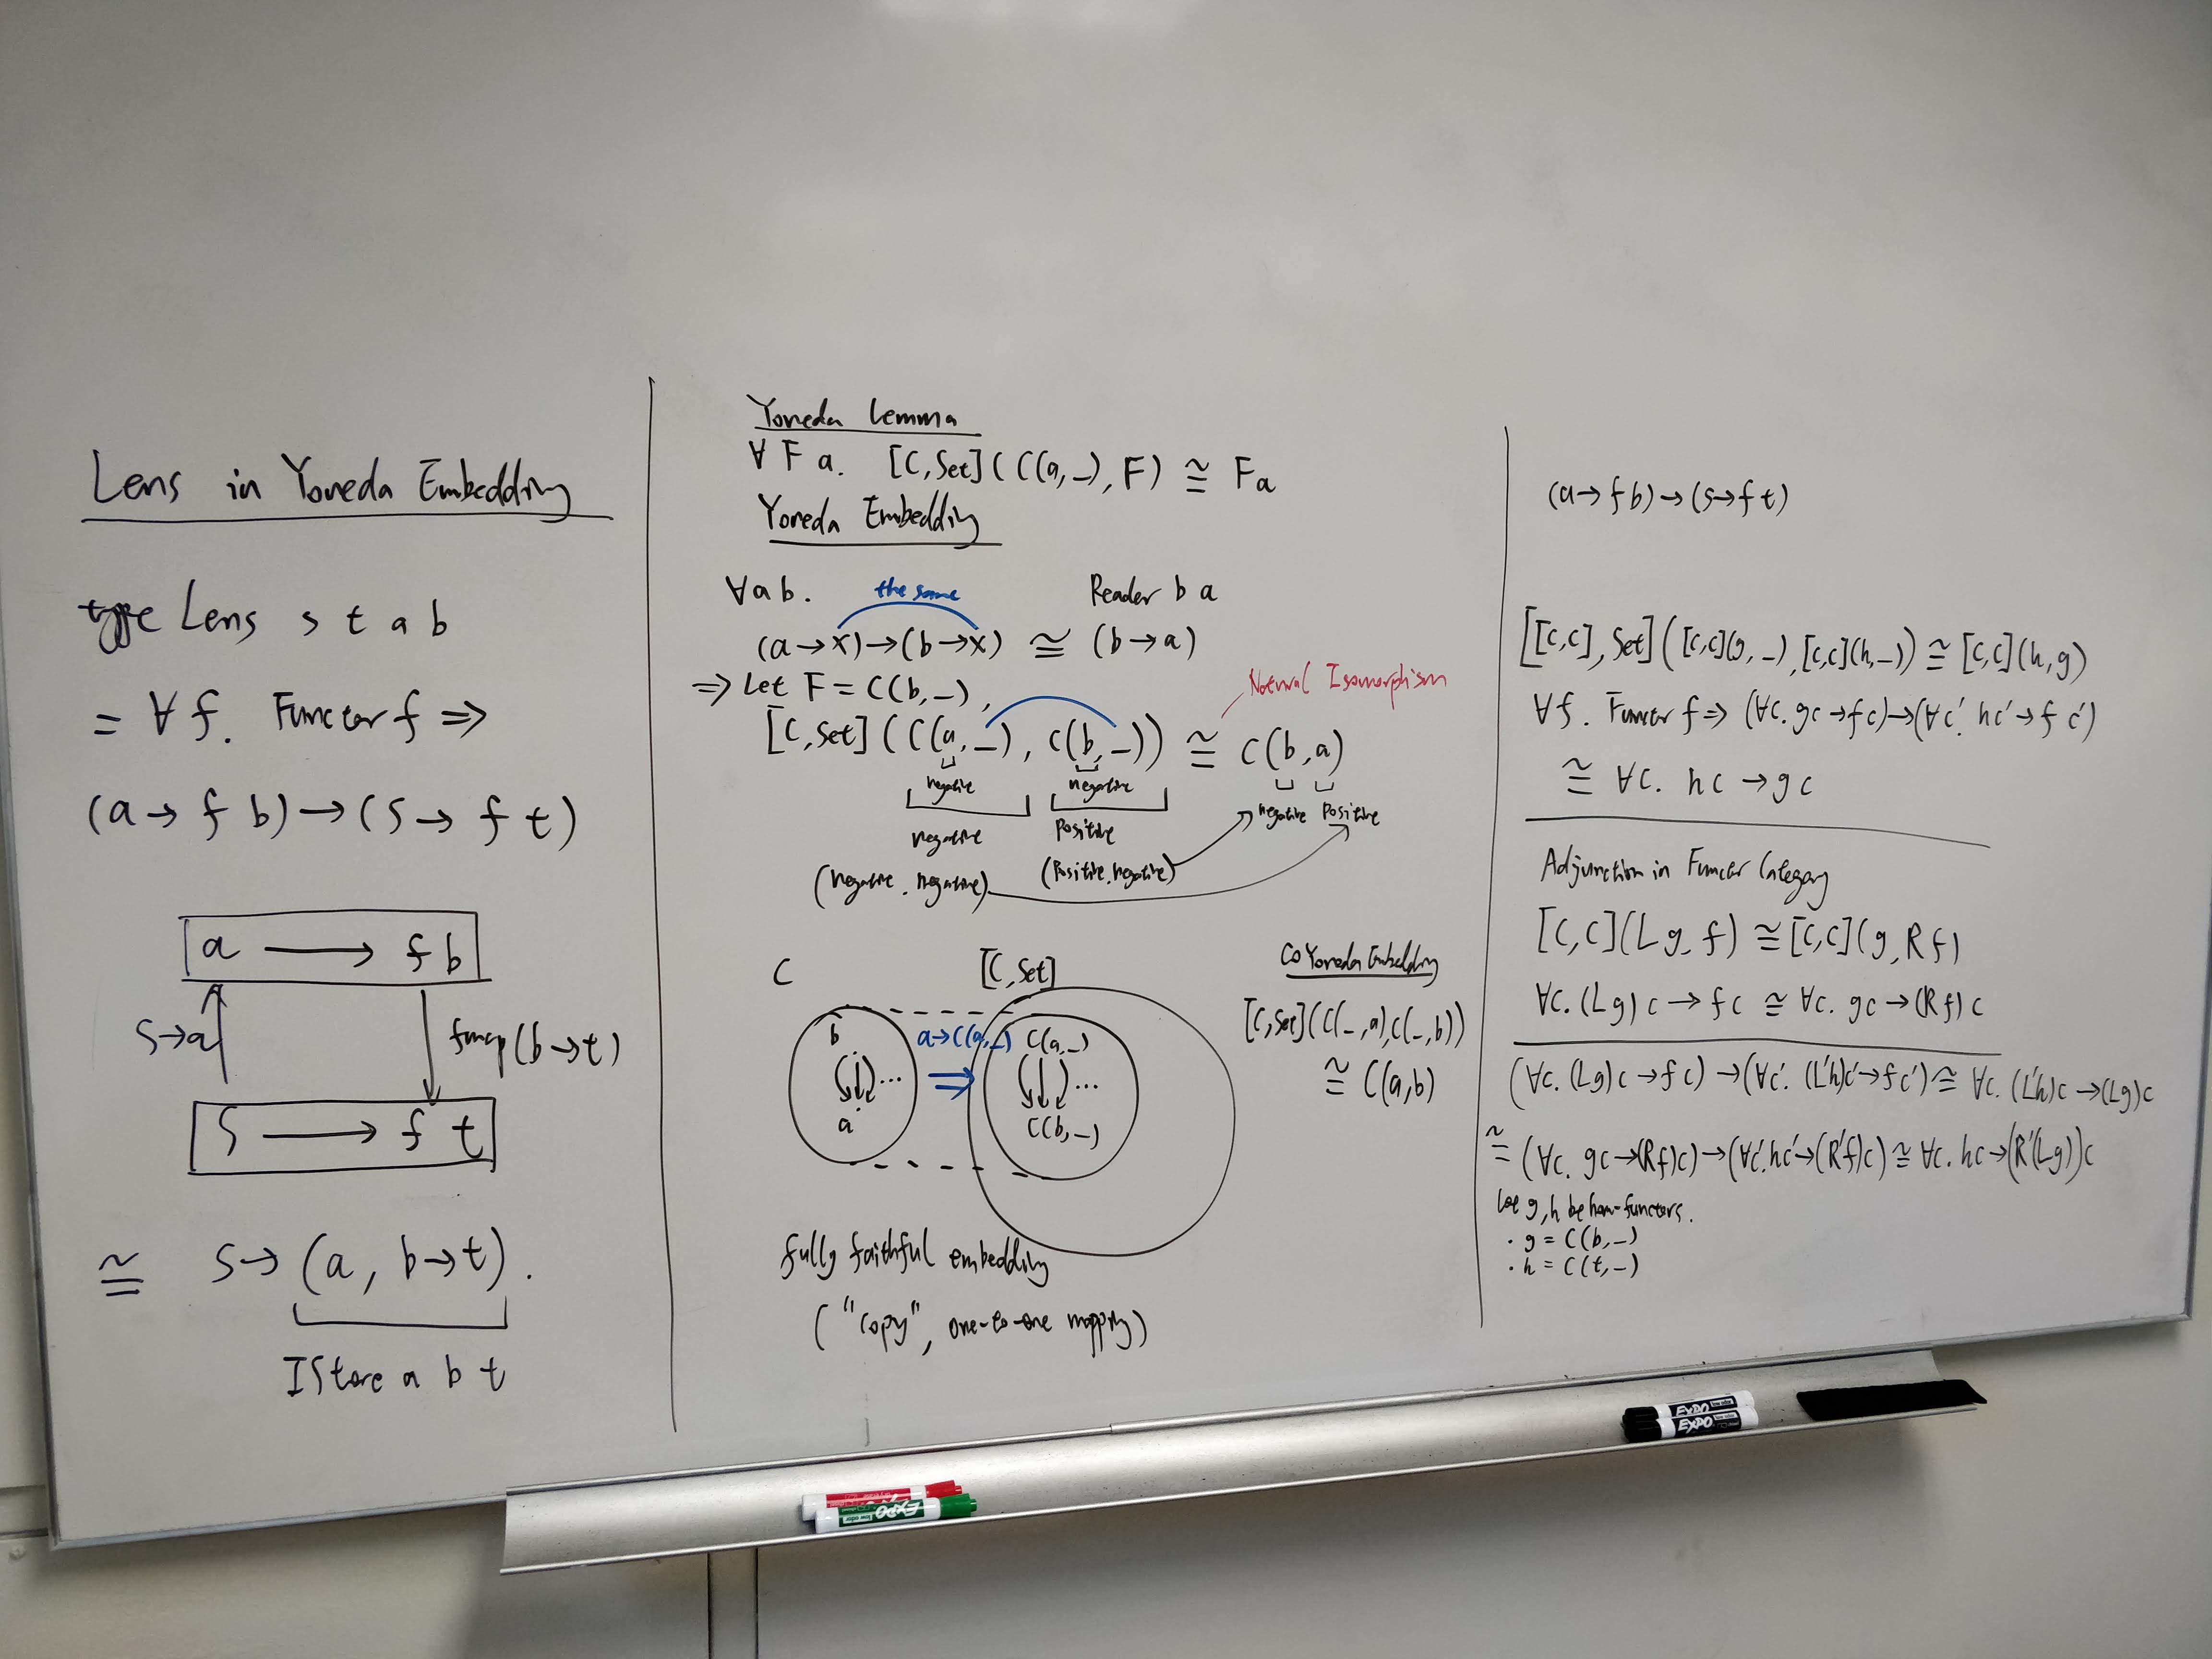 Lens in Yoneda Embedding
type Lens s t a b
= ∀ f. Functor f ⇒
(a → f b) → (s → f t)
a → f b
s → a
fmap (b → t)
s → f t
≅ s → (a, b → t).
IStore a b t
Yoneda Lemma
∀ F a. [C, Set] (C(a, –), F) ≅ F a
Yoneda Embedding
∀ a b. the same Reader b a
(a → x) → (b → x) ≅ (b → a)
⇒ Let F = C(b, –),
Natural Isomorphism
[C, Set] (C(a, –), C(b, –)) ≅ C(b, a)
negative negative
negative Positive negative Positive
(negative, negative) (Positive, negative)
C [C, Set]
b a → C(a, –) C(a, –)
... ⇒ ...
a C(b, –)
fully faithful embedding
("copy", one-to-one mapping)
CoYoneda Embedding
[C, Set] (C(–, a), C(–, b))
≅ C(a, b)
(a → f b) → (s → f t)
[[C, C], Set] ([C, C](g, –), [C, C](h, –)) ≅ [C, C](h, g)
∀ f. Functor f ⇒ (∀c. g c → f c) → (∀c'. h c' → f c')
≅ ∀c. h c → g c
Adjunction in Functor Category
[C, C](L g, f) ≅ [C, C](g, R f)
∀c. (L g) c → f c ≅ ∀c. g c → (R f) c
(∀c. (L g) c → f c) → (∀c'. (L'h) c' → f c') ≅ ∀c. (L'h) c → (L g) c
≅ (∀c. g c → (R f) c) → (∀c'. h c' → (R'f) c') ≅ ∀c. h c → (R'(L g)) c
Let g, h be hom-functors.
· g = C(b, –)
· h = C(t, –)
EXPO
EXPO
EXPO